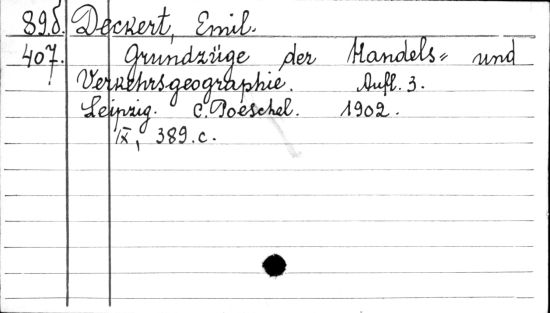 89.δ. Deckert, Emil.
407. Grundzüge der Handels= und
Verkehrsgeographie. Aufl. 3.
Leipzig. C. Poeschel. 1902.
IX, 389.c.